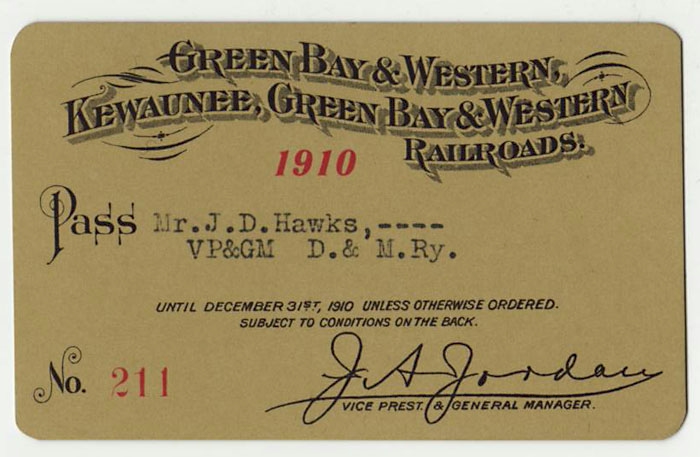 GREEN BAY & WESTERN,
KEWAUNEE, GREEN BAY & WESTERN
RAILROADS.
1910
Pass Mr.J.D.Hawks,----
VP&GM D.& M.Ry.
UNTIL DECEMBER 31ST, 1910 UNLESS OTHERWISE ORDERED.
SUBJECT TO CONDITIONS ON THE BACK.
No. 211
J A Jordan
VICE PREST. & GENERAL MANAGER.